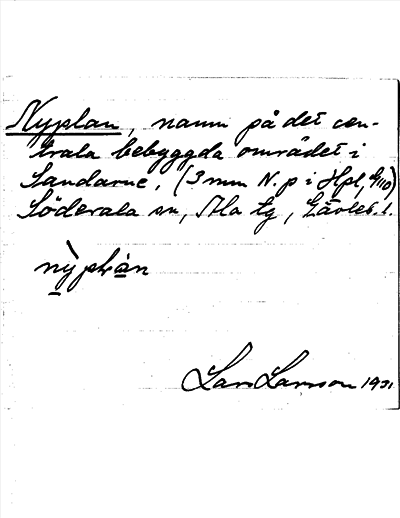 Nyplan, namn på det cen-
trala bebyggda området i
Sandarne, (3 mm N. p i Hpl, G110)
Söderala sn, Ala tg, Gävleb. l.
nỳplàn
Lars Larsson 1931